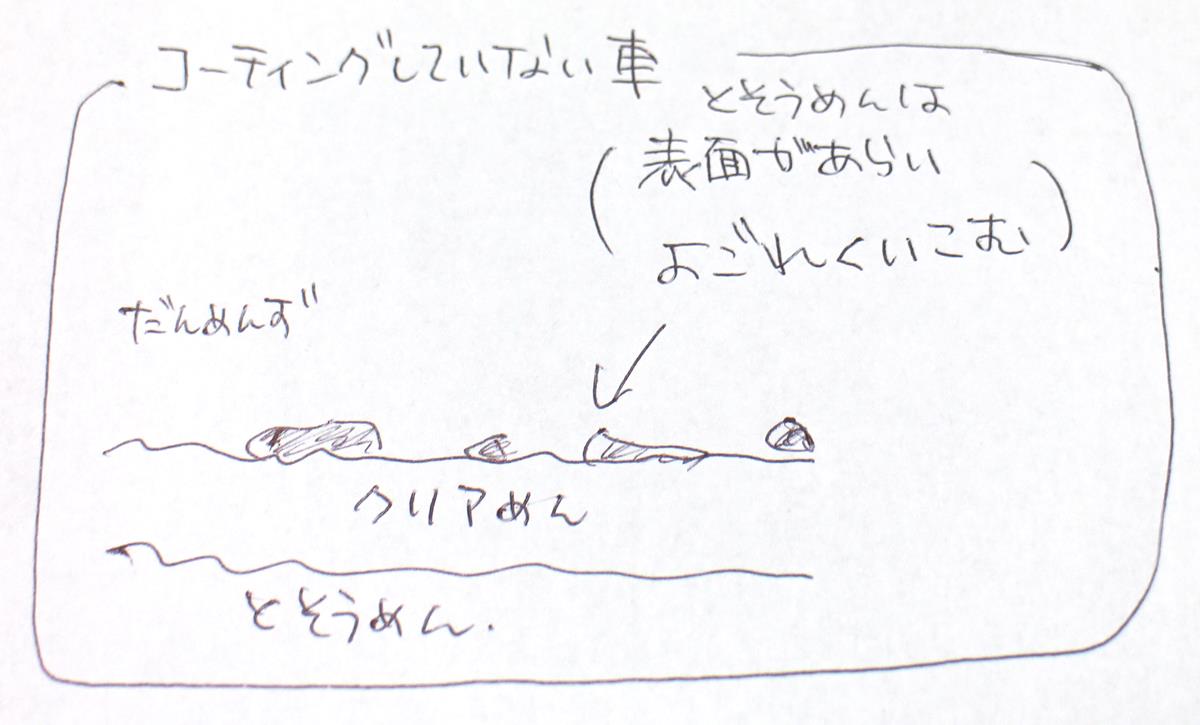 コーティングしていない車
とそうめんは
(表面があらい
よごれくいこむ)
だんめんず
クリアめん
とそうめん.